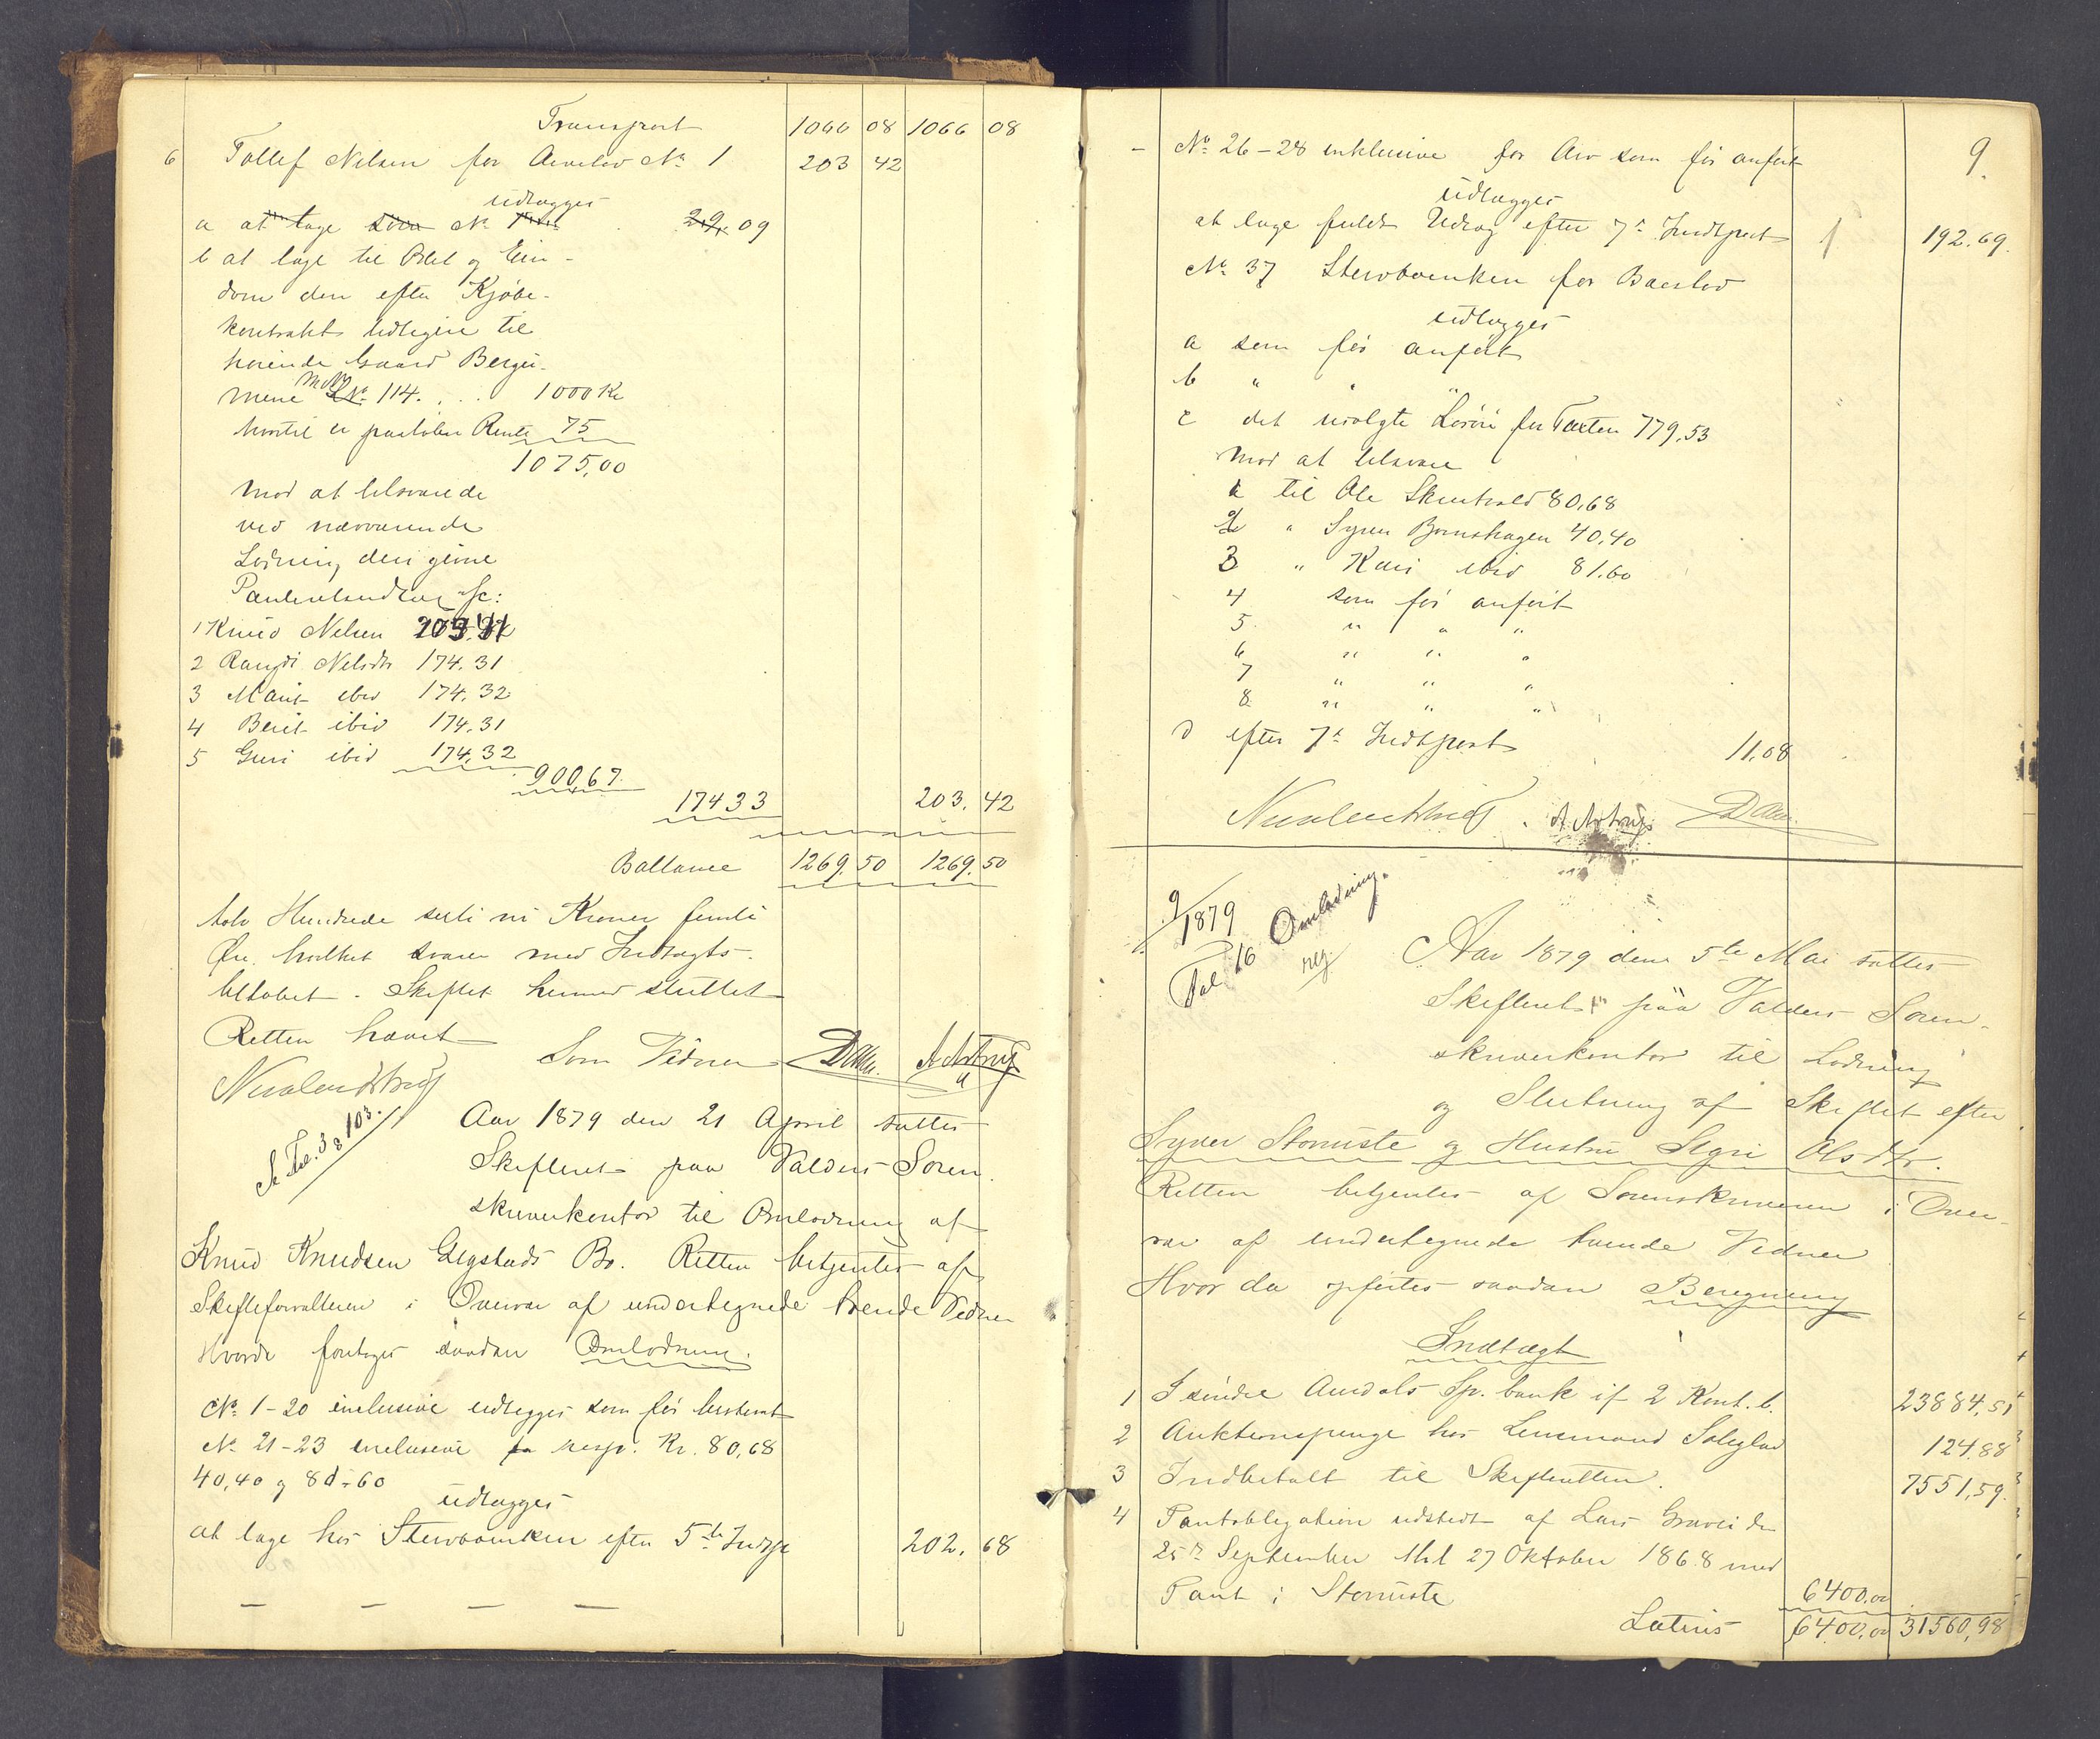 Transport 1066 08 1066 08
6 Tollef Nilsen for Arvelod No 1 203 42
udlægges
a at tage No 29,09
b at tage til Bebl og Eien-
dom den efter Kjøbe-
kontrakt
hørende Gaard Bergs-
mene MNo 114. . . 1000 Kr
hvortil er paaløben Rente 75
1075,00
mod at tilsvare de
ved nærværende
Lodning den givne
Panteretsudlæg sc:
1 Knud Nilsen 203,41
2 Rangdi Nilsdtr 174.31
3 Marit ibid 174,32
4 Berit ibid 174,31
5 Guri ibid 174,32
900,67
174 33 203. 42
Ballance 1269. 50 1269. 50
tolv Hundrede sexti ni Kroner femti
Øre, hvilket svarer med Indtægts-
beløbet. Skiftet hermed sluttet
Retten hævet
Som Vidner
A Fol. 38 103.
Aar 1879 den 21 April sattes
Skifteret paa Valders Soren-
skriverkontor til Omlodning af
Knud Knudsen Egstads Bo. Retten betjentes af
Skifteforvalteren i Overvær af undertegnede tvende Vidner
Hvorda foretoges saadan Omlodning.
No 1-20 inclusive udlægges som før bestemt
No 21-23 inclusive resp. Kr. 80,68
40,40 og 81-60
udlægges
at tage hos Stervboenken efter 5te Indtp 202. 68
— — — —
9.
- No 26-28 inklusive for Arv som før anført
udlægges
at tage fuldt Udlæg efter 7de Indtpost 192.69.
No 37 Stervboenken for Boeslod
udlægges
a som før anført
b " " "
c det usolgte Løsøre for Taxten 779,53
mod at tilsvare
1 til Ole Skrutvold 80,68
2 " Syver 40,40
3 " Kari ibid 81.60
4 som før anført
5. " " "
6 " " "
7 " " "
8. " " "
d efter 7de Indtpost 11,08
9/1879
Fol. 16 Omlodning.
Aar 1879 den 5te Mai sattes
Skifteret paa Valders Soren-
skriverkontor til Lodning
og Slutning af Skiftet efter
Syver Stomiste og Hustru Sigri Olsdtr.
Retten betjentes af Sorenskriveren i Over-
vær af undertegnede tvende Vidner
Hvor da opførtes saadan Beregning
Indtægt
1 I søndre Aurdals Sp. bank if 2 Kont. b. 23884,51
2 Auktionspenge hos Lensmand 124.88
3 Indbetalt til Skifteretten. 7551,59.
4 Pantobligation udstedt af Lars den
25de September thl 27 Oktober 1868 med
Pant i Stomiste 6400,00
Lateris 6400,00 31560,98